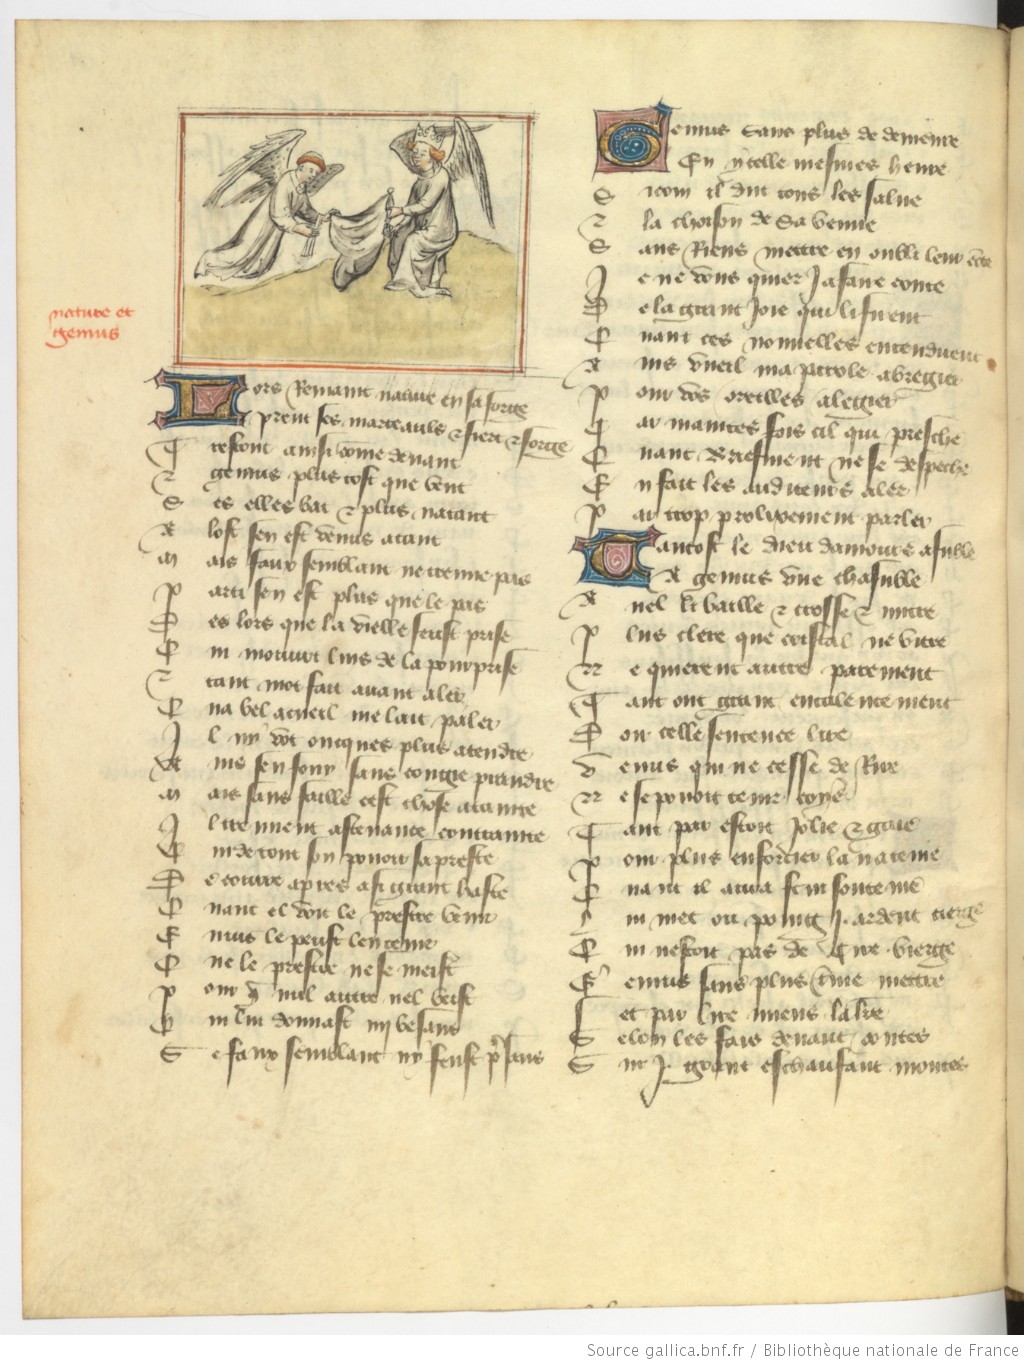 nature et
genius
Lors Remaint nature en sa forge
prent ses marteauls & fiert & forge
Trestout ainsi come deuant
& genius plus tost que vent
Ses elles bat & plus natant
A lost sen est venus atant
Mais faux semblant ne treuue pas
Parti sen est plus que le pas
Des lors que la vielle feust prise
Qui mouurt luis de la pourprise
& tant mot fait auant aler
Qua bel acueil me lait paler
Il ny volt oncques plus atendre
Ains sen fouy sans congie prandre
Mais sans faille cest chose atainte
Il treuuent astenance contrainte
Qui de tout son pouoir sapreste
De courre apres a si grant haste
Quant el voit le prestre venir
Enuis le peust len tenir
Que le prestre ne se meist
Pour nul autre nel veist
Qui luy donnast iiij besans
Se faux semblant ny feust presans
Genius sans plus de demeure
En ycelle mesmes heure
Sicom il dut tous les salue
& la choison de sa venue
Sans Riens mettre en oubli leur
Je ne vous quier Ja faire conte
De la grant Joie quil firent
Quant ces nouuelles entendirent
Ains vueil ma parole abregier
Pour vos oreilles alegier
Par maintes fois cil qui presche
Quant Briefment ne se despeche
En fait les auditeurs aler
Par trop prolixement parler
Tantost le dieu damours afuble
A genius vne chasuble
Anel li baille & crosse & mitre
Plus clere que cristal ne vitre
Ne quierent autre parement
Tant ont grant entalentement
Dour celle sentence lire
Venus qui ne cesse de Rire
Ne se pouoit tenir coye
Tant par estoit Jolie & gaie
Pour plus enforcier la
Quant il aura
Ly met ou poing .j. ardent cierge
Qui nestoit pas de Cire vierge
Genius sans plus mettre
Set par lire miens la lettre
Selon les fais deuant contes
Sur .j. grant eschaufaut montes
Source gallica.bnf.fr / Bibliothèque nationale de France